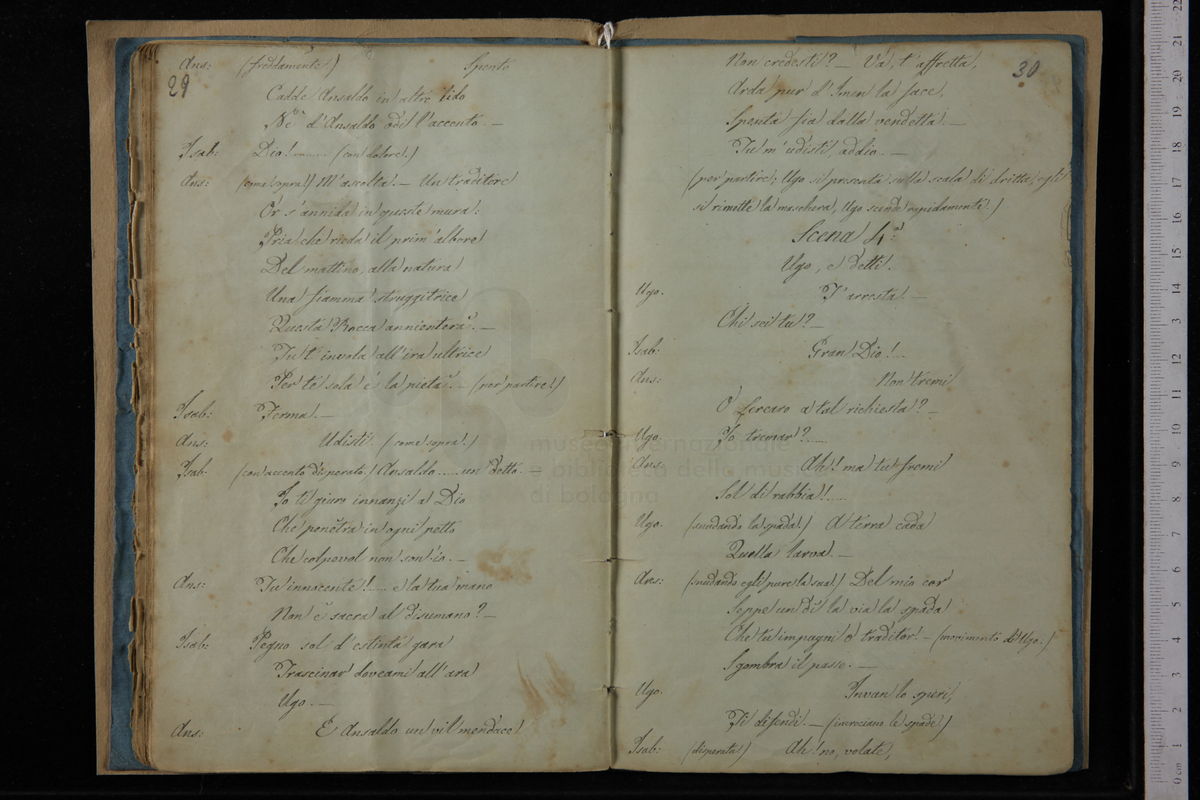 29
Ans: (freddamente.) Spento
Cadde Ansaldo in altro lido
Nè d'Ansaldo odi l'accento. —
Isab: Dio!........ (con dolore.)
Ans: (come sopra.) M'ascolta. — Un traditore
Or s'annida in queste mura:
Pria che rieda il prim'albore
Del mattino, alla natura
Una fiamma struggitrice
Questa Rocca annienterà. —
Tu t'invola all'ira ultrice
Per te sola è la pietà. — (per partire.)
Isab: Ferma. —
Ans: Udisti. (come sopra.)
Isab: (con accento disperato.) Ansaldo......un detto.
Io ti giuro innanzi a Dio
Che penètra in ogni petto
Che colpevol non son io. —
Ans: Tu innocente!...... e la tua mano
Non è sacra al disumano? —
Isab: Pegno sol d'estinta gara
Trascinar doveami all'ara
Ugo. —
Ans: È Ansaldo un vil mendace
30
Non credesti? — Va, t'affretta,
Arda pur d'Imen la face,
Spenta fia dalla vendetta. —
Tu m'udisti, addio. —
(per partire, Ugo si presenta sulla scala di dritta, egli
si rimette la maschera, Ugo scende rapidamente.)
Scena 4:ª
Ugo, e detti.
Ugo. T'arresta. —
Chi sei tu? —
Isab: Gran Dio!...
Ans: Non tremi
O fercaro a tal richiesta? —
Ugo. Io tremar?......
Ans. Ah! ma tu fremi
Sol di rabbia!......
Ugo. (snudando la spada.) A terra cada
Quella larva. —
Ans: (snudando egli pure la sua.) Del mio cor
Seppe un dì la via la spada
Che tu impugni o traditor! — (movimento di Ugo.)
Sgombra il passo. —
Ugo. Invan lo speri,
Ti difendi. — (incrociano le spade.)
Isab: (disperata.) Ah! no, volate,
museo internazionale
e biblioteca della musica
di bologna